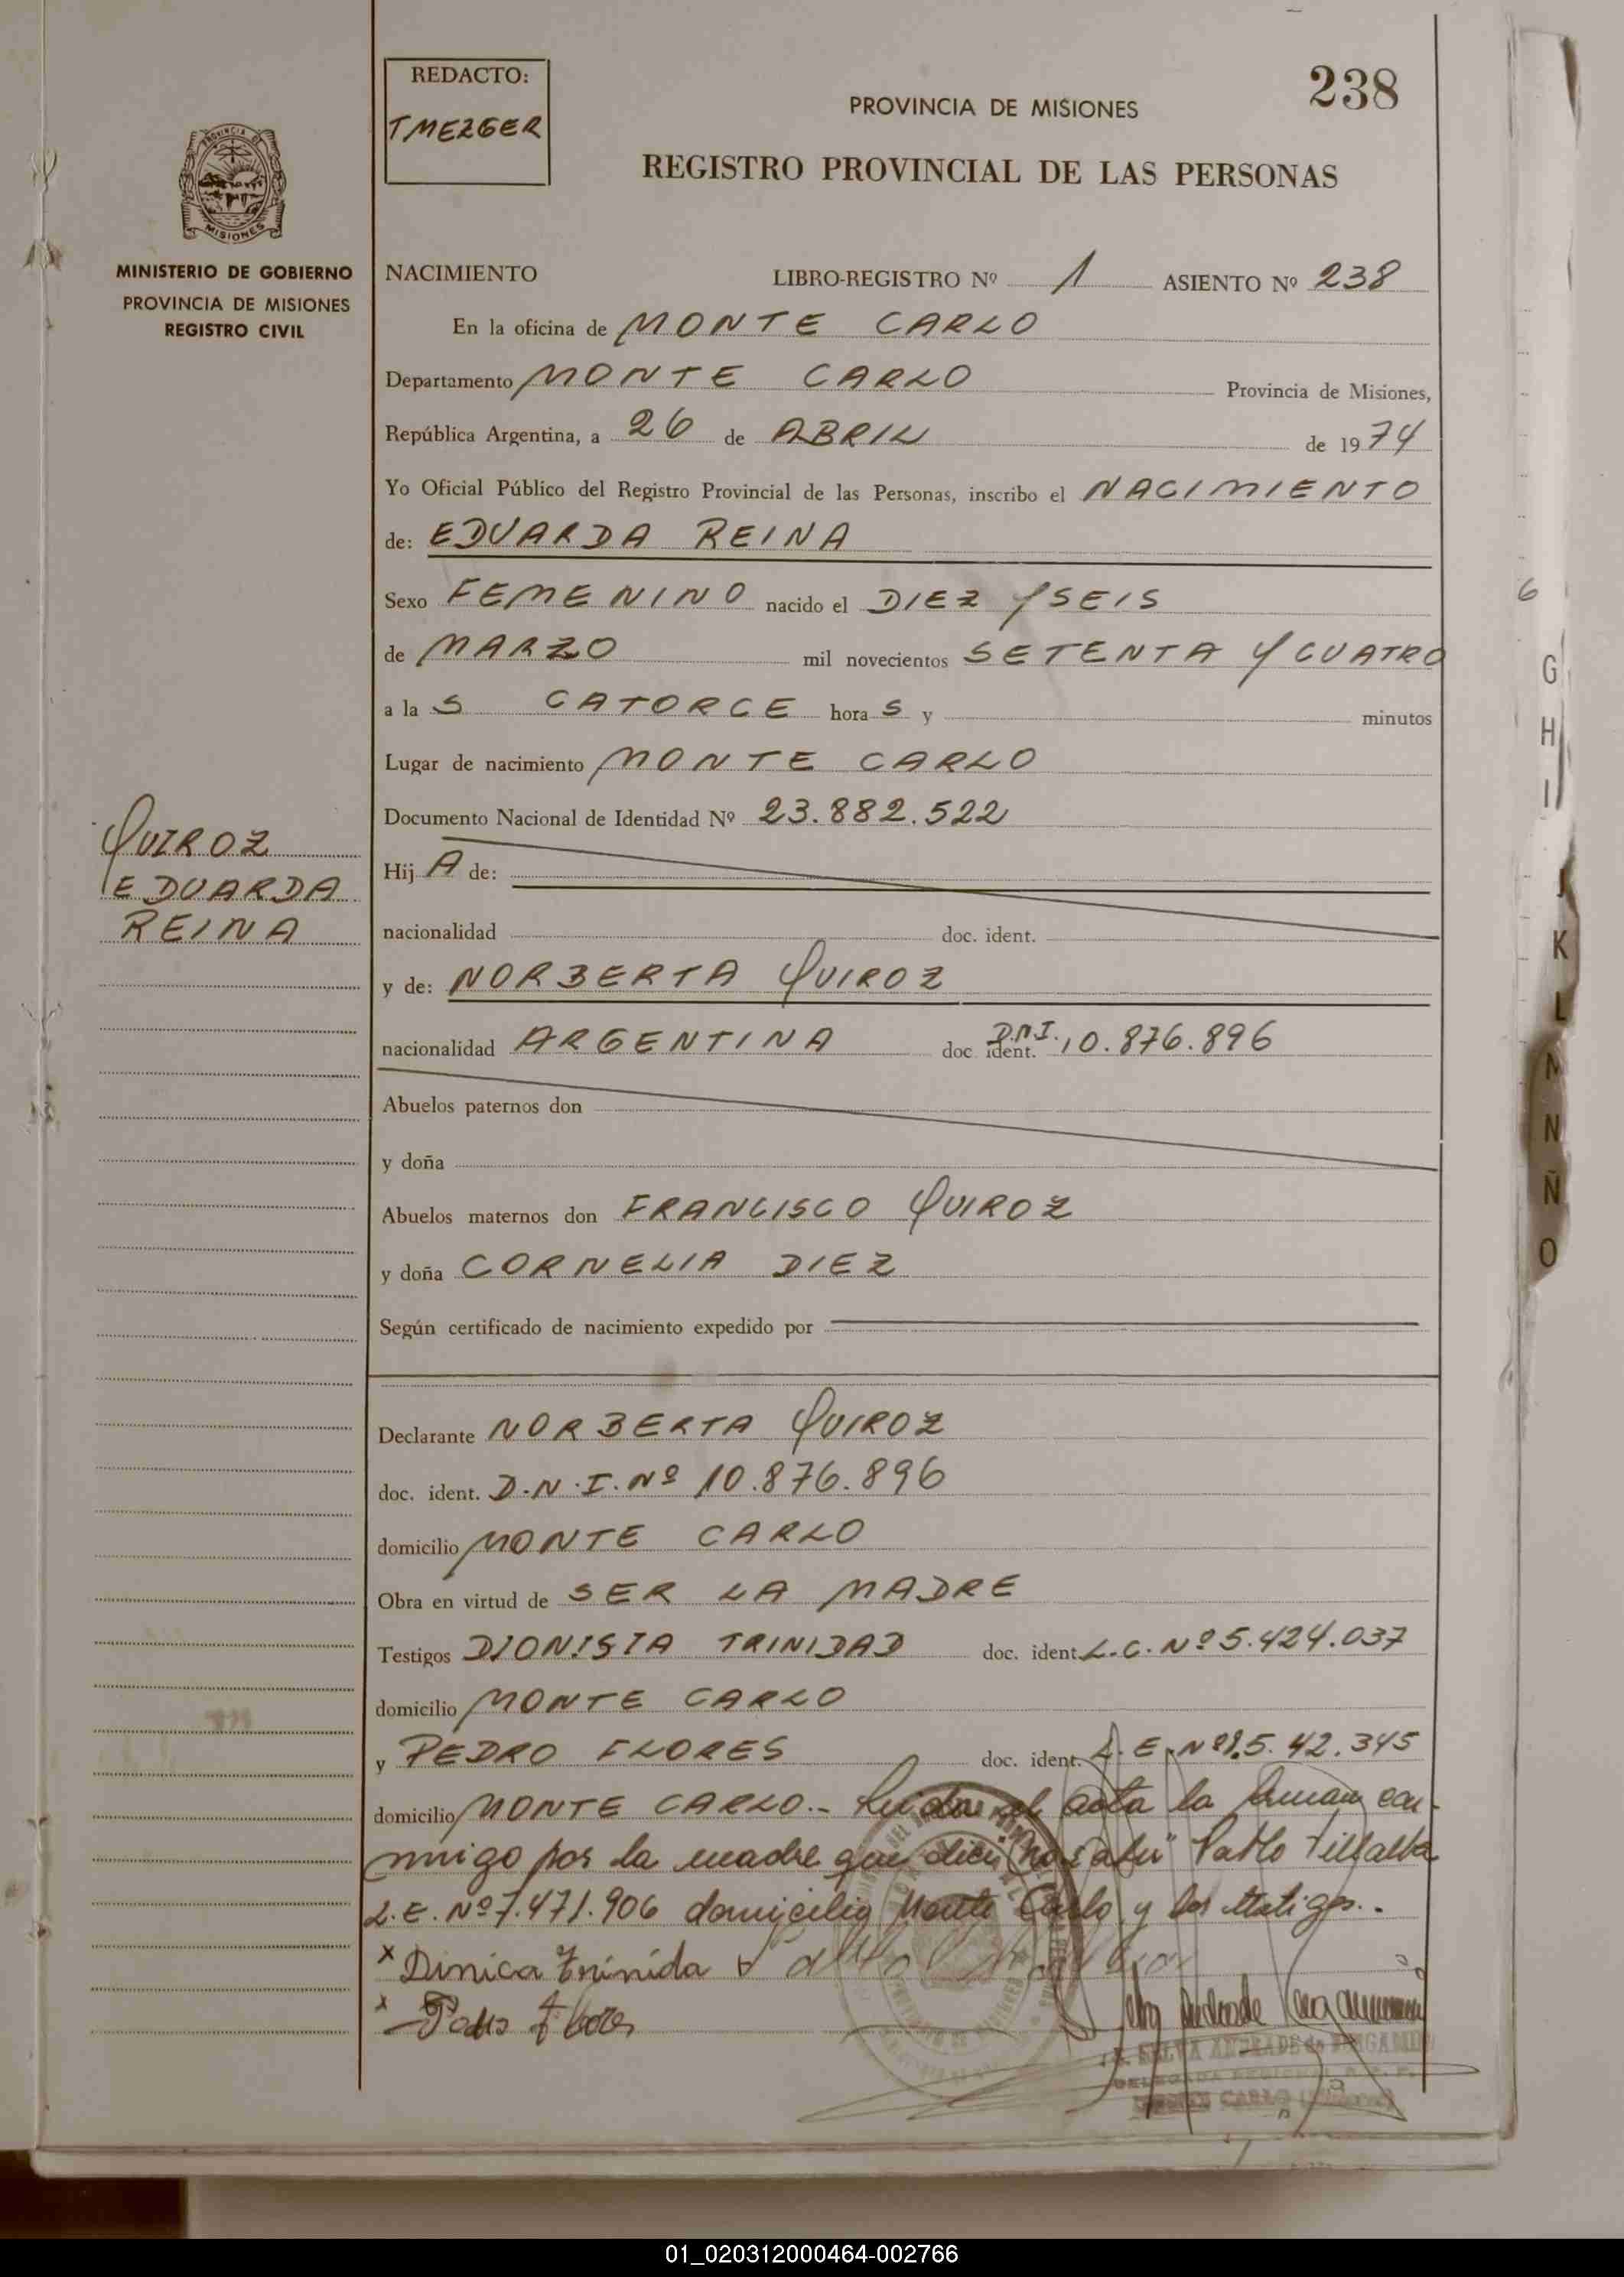 REDACTO:
TMEZGER
238
PROVINCIA DE MISIONES
REGISTRO PROVINCIAL DE LAS PERSONAS
PROVINCIA DE
MISIONES
MINISTERIO DE GOBIERNO
PROVINCIA DE MISIONES
REGISTRO CIVIL
NACIMIENTO LIBRO-REGISTRO Nº 1 ASIENTO Nº 238
En la oficina de MONTE CARLO
Departamento MONTE CARLO Provincia de Misiones,
República Argentina, a 26 de ABRIL de 1974
Yo Oficial Público del Registro Provincial de las Personas, inscribo el NACIMIENTO
de: EDUARDA REINA
Sexo FEMENINO nacido el DIEZ Y SEIS
de MARZO mil novecientos SETENTA Y CUATRO
a la S CATORCE hora S y minutos
Lugar de nacimiento MONTE CARLO
Documento Nacional de Identidad Nº 23.882.522
QUIROZ
EDUARDA
REINA
Hij A de:
nacionalidad doc. ident.
y de: NORBERTA QUIROZ
nacionalidad ARGENTINA doc. ident. D.N.I. 10.876.896
Abuelos paternos don
y doña
Abuelos maternos don FRANCISCO QUIROZ
y doña CORNELIA DIEZ
Según certificado de nacimiento expedido por
Declarante NORBERTA QUIROZ
doc. ident. D.N.I. Nº 10.876.896
domicilio MONTE CARLO
Obra en virtud de SER LA MADRE
Testigos DIONISIA TRINIDAD doc. ident. L.C. Nº 5.424.037
domicilio MONTE CARLO
y PEDRO FLORES doc. ident. L.E. Nº
domicilio MONTE CARLO.- Leida el acta la firman con-
migo por la madre que dice "no saber" Pablo Villalba
L.E. Nº 7.471.906 domicilio Monte Carlo y los testigos.-
x Dinica Trinida
x
SELVA ANDRADE de BERGAMIN
6
G
H
I
J
K
L
M
N
Ñ
O
01_020312000464-002766